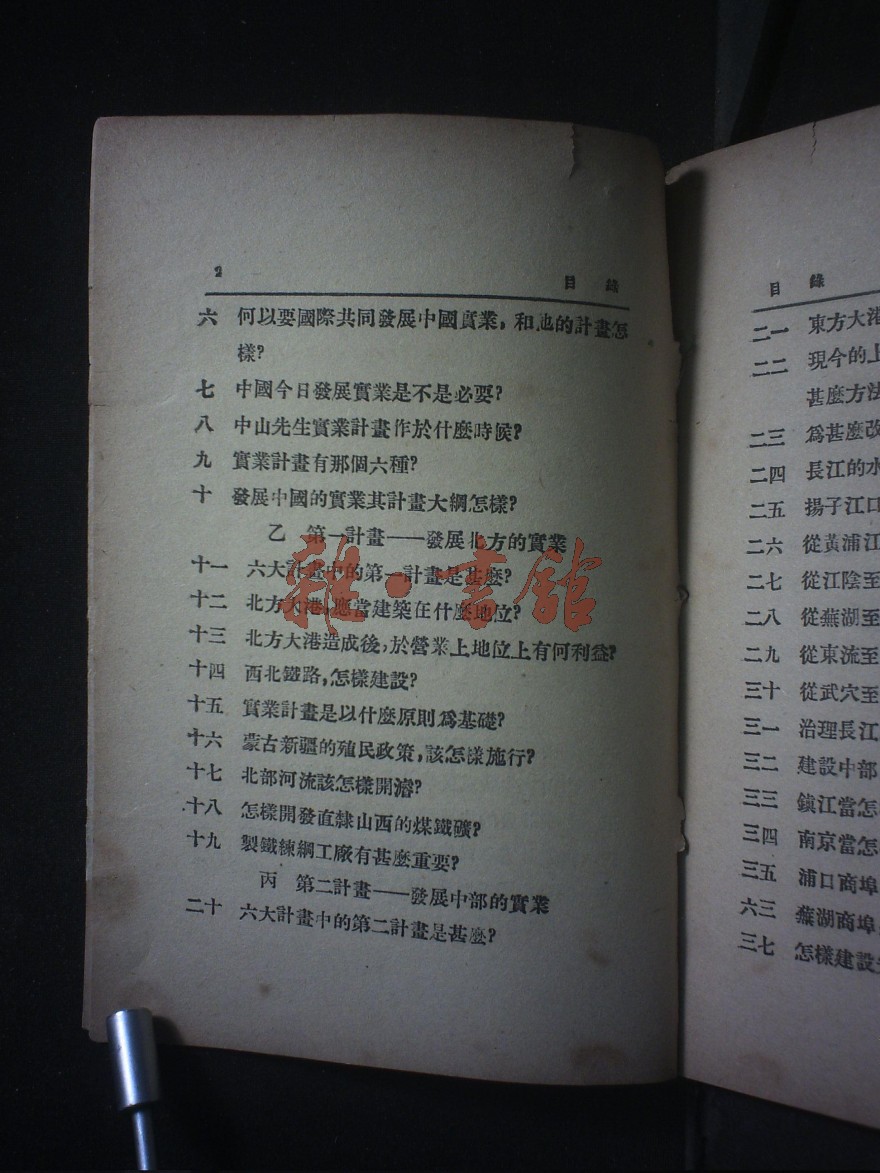 2
目 錄
六 何以要國際共同發展中國實業，和他的計畫怎
樣？
七 中國今日發展實業是不是必要？
八 中山先生實業計畫作於什麼時候？
九 實業計畫有那個六種？
十 發展中國的實業其計畫大綱怎樣？
乙 第一計畫——發展北方的實業
十一 六大計畫中的第一計畫是甚麼？
十二 北方大港，應當建築在什麼地位？
十三 北方大港造成後，於營業上地位上有何利益？
十四 西北鐵路，怎樣建設？
十五 實業計畫是以什麼原則爲基礎？
十六 蒙古新疆的殖民政策，該怎樣施行？
十七 北部河流該怎樣開濬？
十八 怎樣開發直隸山西的煤鐵礦？
十九 製鐵練綱工厰有甚麼重要？
丙 第二計畫——發展中部的實業
二十 六大計畫中的第二計畫是甚麼？
雜·書館
目 錄
二一 東方大港
二二 現今的上
甚麼方法
二三 爲甚麼改
二四 長江的水
二五 揚子江口
二六 從黃浦江
二七 從江陰至
二八 從蕪湖至
二九 從東流至
三十 從武穴至
三一 治理長江
三二 建設中部
三三 鎮江當怎
三四 南京當怎
三五 浦口商埠
六三 蕪湖商埠
三七 怎樣建設